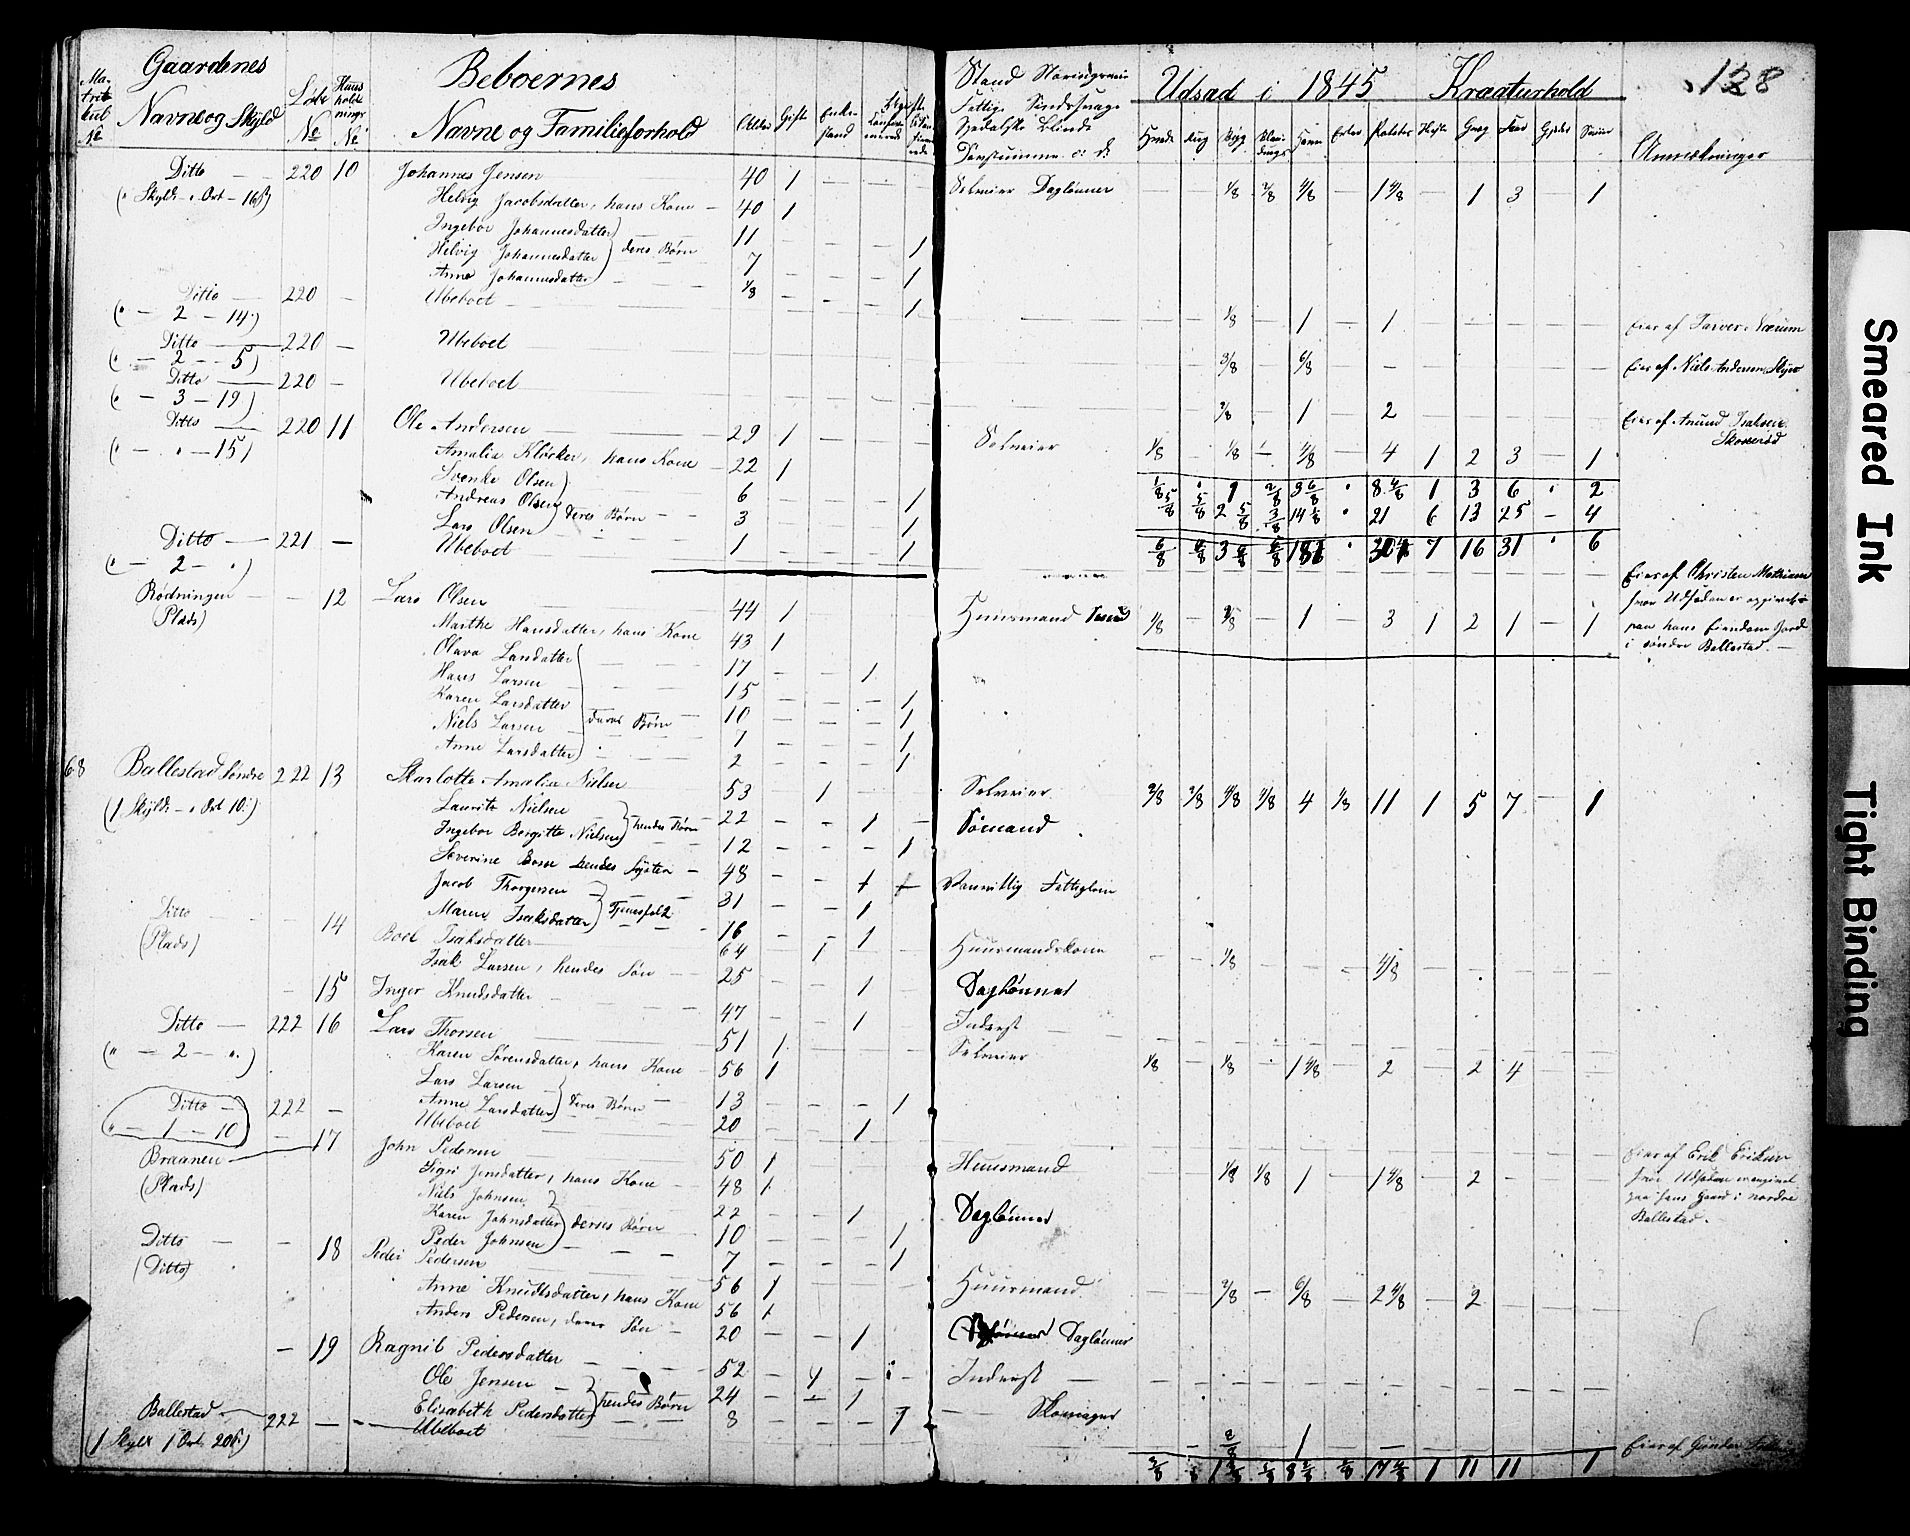 Gaardenes
Navne og Skyld
Ma-
trik
kul
№
Løbe
№
Huus
holdnings
№
Beboernes
Navne og Familieforhold
Alder Gifte Enke-
stand
Stand Næringsvei
Fattige Sindssvage
Blinde
Døvstumme
Udsad i 1845 Kreaturhold 128
Hvede Rug Byg Havre Erter Poteter Heste Qvæg Faar Gjeder Sviin
Anmærkninger
Ditto — 220 10 Johannes Jensen 40 1 — — Selveier Dagleønner — — 1/8 2/8 4/8 — 1 4/8 — 1 3 — 1
Helvig Jacobsdatter, hans Kone — 40 1
Ingebor Johannesdatter 11 — — — 1
Helvig Johannesdatter } deres Børn 7 — — — 1
Anne Johannesdatter 1/8 — — — 1
Ditto — 220 — Ubeboet
(" — 2 — 14) 1/8 — 1 — 1
Ditto — 220 — Ubeboet
(" — 2 — 5) 3/8 — 6/8 Eies af Niels Andersen
Ditto — 220 — Ubeboet
(" — 3 — 19) 2/8 — 1 — 2 Eies af Amund Isaksen
Ditto — 220 11 Ole Andersen 29 1 — Selveier 1/8 — 1/8 — 4/8 — 4 1 2 3 — 1
(" — " — 15)
Amalia Klöcker, hans Kone — 22 1
Svenke Olsen 6 — — — 1
Andreas Olsen } deres Børn — 3 — — — 1
Lars Olsen 1 — — — 1
1 3 6 " 2
21 6 13 25 — 4
7 16 31 " 6
Ditto — 221 — Ubeboet
(" — 2 — ") Eies af Christen Mathisen
hvor Udsæden er opgivet
paa hans Eiendoms Gaard
i søndre Ballestad. —
Rødningen — — 12 Lars Olsen 44 1 Huusmand 1/8 — 2/8 — 1 — 3 1 2 1 — 1
(Plads)
Marthe Hansdatter, hans Kone 43 1
Olava Larsdatter 17 — — 1
Hans Larsen 15 — — — 1
Karen Larsdatter 10 — — — 1
Niels Larsen } deres Børn — 7 — — — 1
Anne Larsdatter 2 — — — 1
68 Ballestad Søndre 222 13 Skarlotte Amalia Nielsen 53 — 1 Selveier 2/8 2/8 4/8 2/8 4 1/8 11 1 5 7 — 1
(1 Skyld — " Ort 10)
Lauritz Nielsen 22 — — 1 — Sömand
Ingebor Bergitte Nielsen } hendes Børn 12 — — — 1
Severine hendes Syster — 48 — — 1 Vanvittig Fattiglem
Jacob Thorgersen 31 — — 1
Maren Isaksdatter } Tjenesfolk 16 — — 1
Ditto — 14 Boel Isaksdatter 64 1 Huusmandskone — — 1/8 — — — 4/8
(Plads)
Isak Larsen, hendes Søn — 25 — — 1 Dagleønner
— 15 Inger Knudsdatter 47 — — 1 Inderst
Ditto — 222 16 Lars Thorsen 51 1 Selveier 1/8 — 1/8 — 1 4/8 — 2 — 2 4
(" — 2 — ")
Karen Sørensdatter, hans Kone — 56 1
Lars Larsen 13 — — — 1
Anne Larsdatter } deres Børn — 20 — — 1
Ditto — 222 — Ubeboet
" — 1 — 10 Eies af Erik Eriksen
hvor Udsæden er angivet
paa hans Gaard i nordre
Ballestad.
Braanen — 17 John Pedersen 50 1 Huusmand 1/8 1/8 1 — 1 4/8 — 2
(Plads)
Sigri Jensdatter, hans Kone — 48 1
Niels Johnsen 22 — — 1 Dagleønner
Karen Johnsdatter } deres Børn 10 — — — 1
Peder Johnsen 7 — — — 1
Ditto — — 18 Peder Pedersen 56 1 Huusmand — — 2/8 — 6/8 — 2 4/8 — 2
(Ditto)
Anne Knudsdatter, hans Kone 56 1
Anders Pedersen, deres Søn — 20 — — 1 Dagleønner
— 19 Ragnil Pedersdatter 52 — 1 — Inderst
Ole Jensen 24 — — 1 Skomager
Elisabeth Pedersdatter } hendes Børn 8 — — — 1
Ballestad — 222 — Ubeboet 2/8 1 Eies af Gunder
(1 Skyld 1 Ort 20)
1 11 11 1
Smeared Ink
Tight Binding